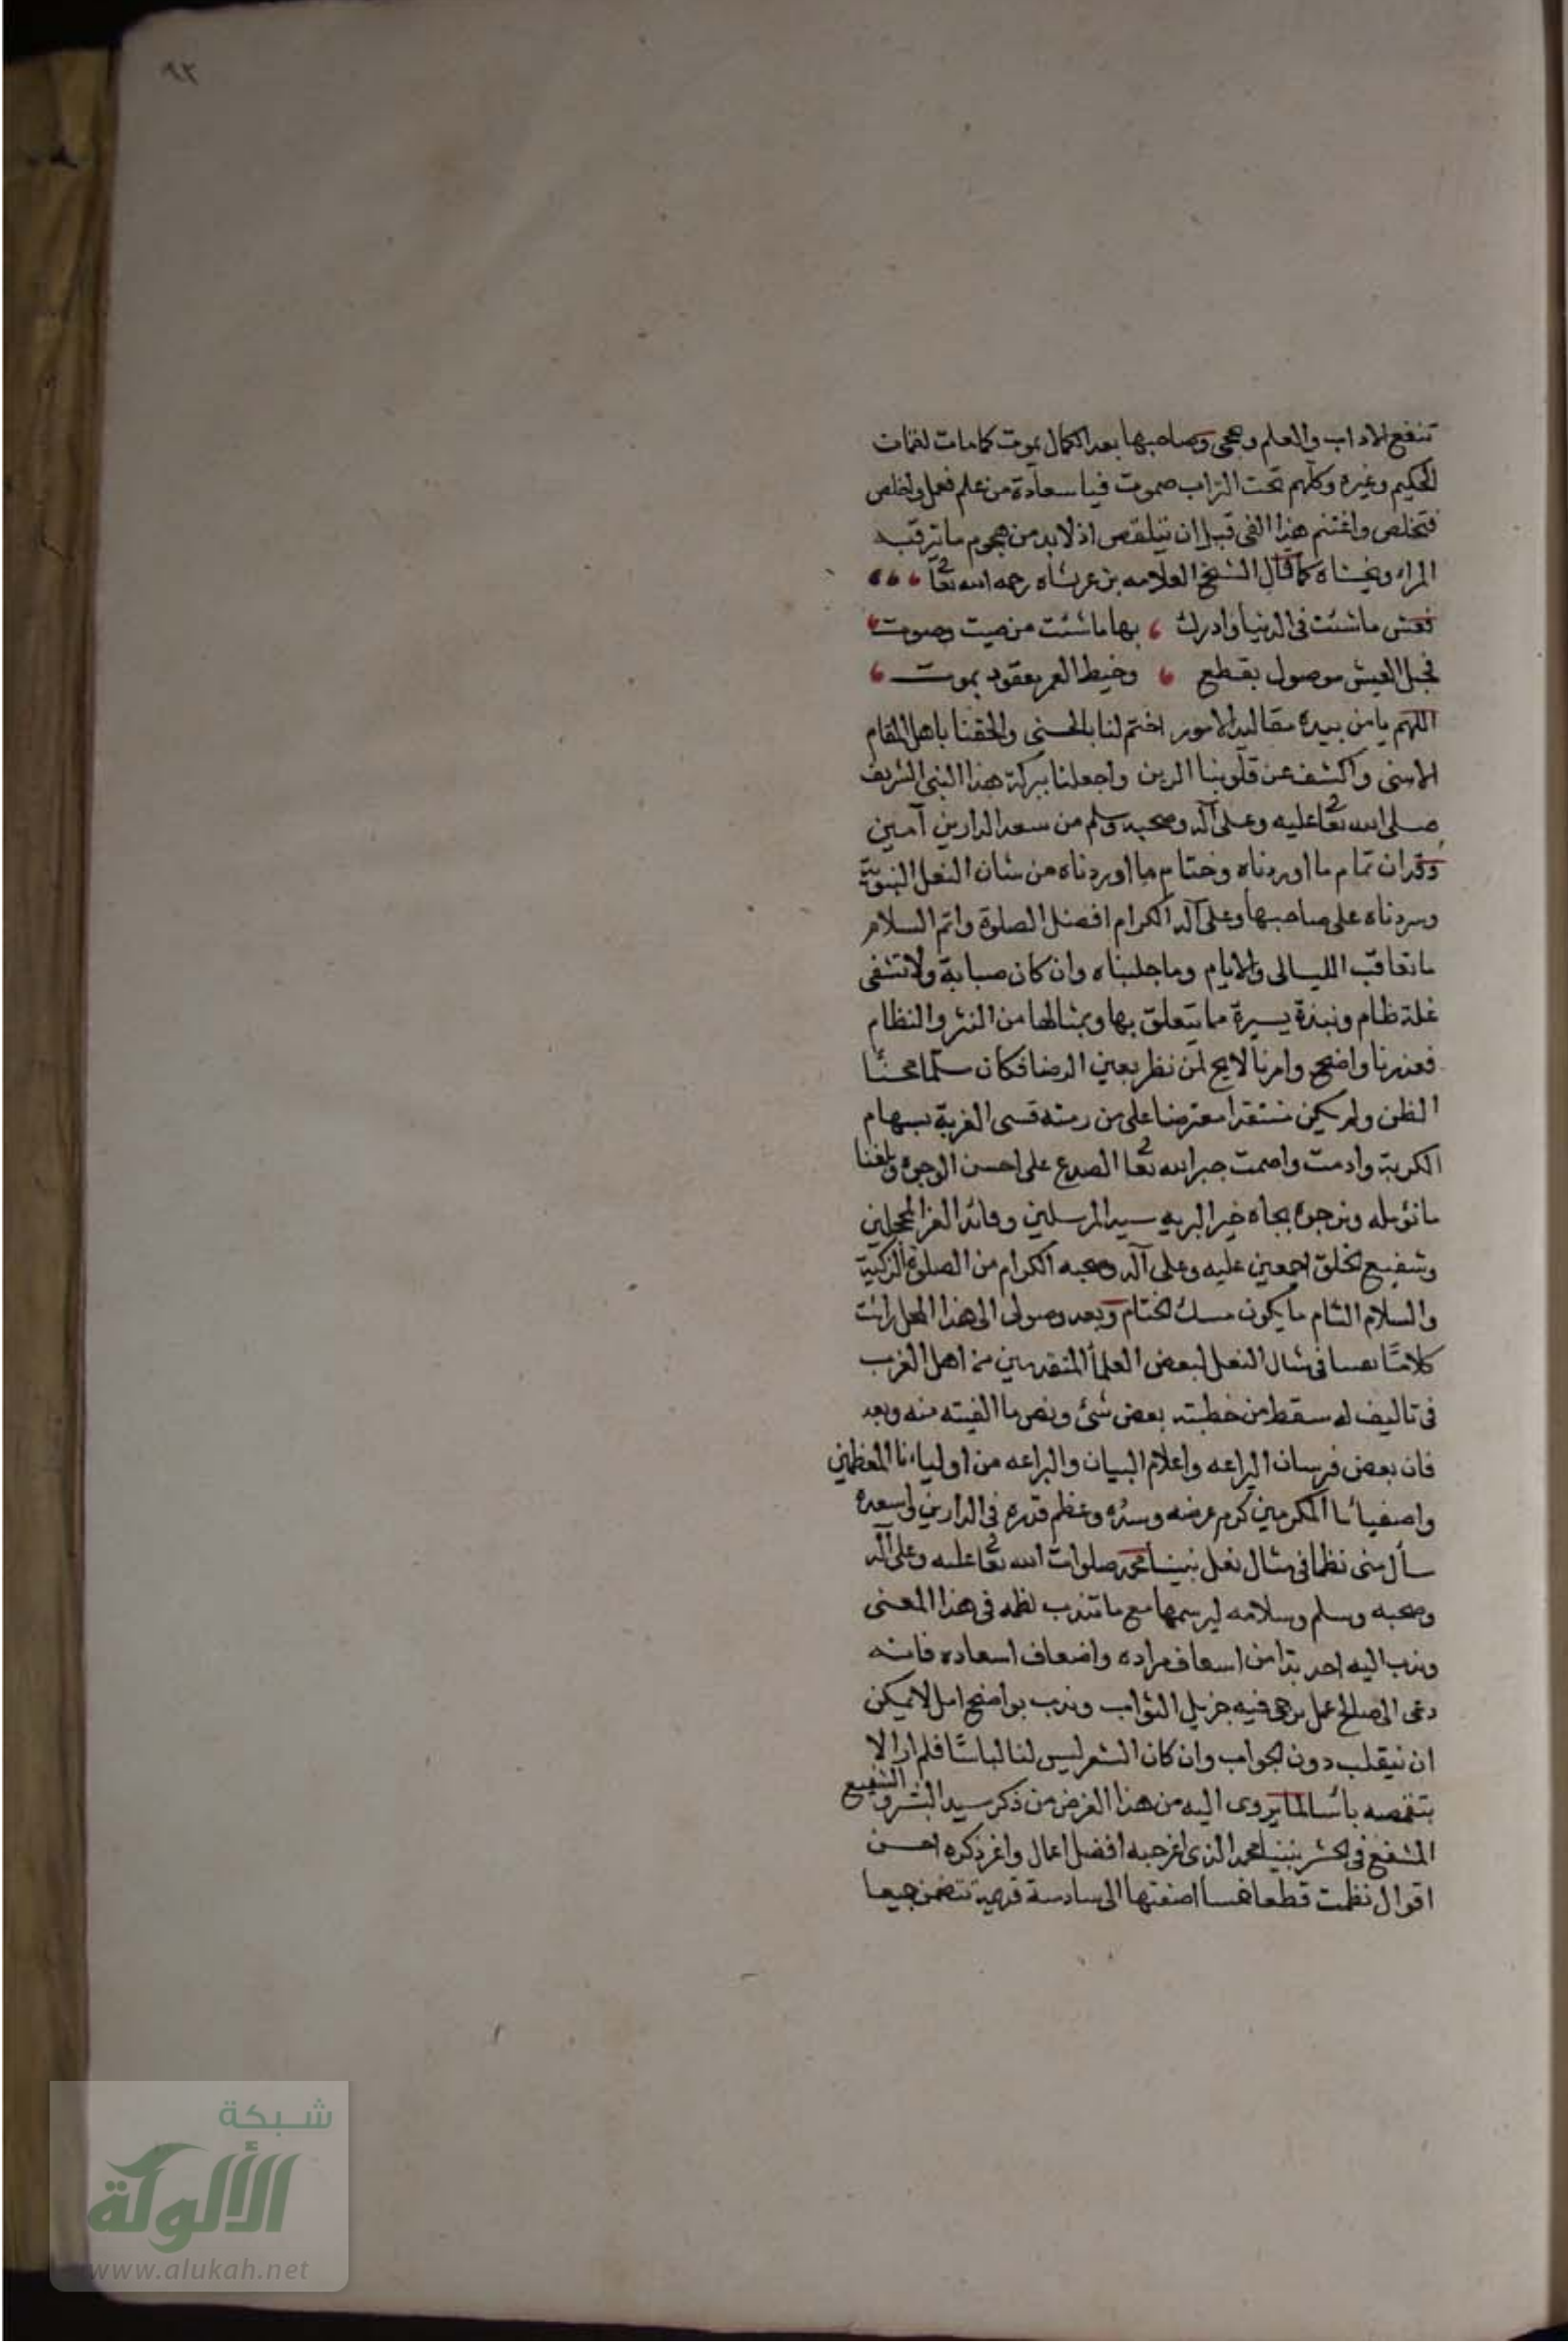 ٩٢
تنفع الاداب والعلم وحجى وصاحبها بعد الكمال يموت كمامات لقمان
الحكيم وغيره وكلهم تحت التراب صموت فيا سعادة من علم فعمل واخلص
فتخلص واغتنم هذا الفئ قبل ان يتقلص اذ لابد من هجوم ما ترقبه
المراء ويخشاه كما قال الشيخ العلامه بن عربشاه رحمه الله تعا
فعش ماشئت فى الدنيا وادرك بها ماشئت من صيت وصوت
فحبل العيش موصول بقطع وخيط العمر معقود بموت
اللهم يا من بيده مقاليد الامور اختم لنا بالحسنى والحقنا باهل المقام
الاسنى واكشف عن قلوبنا الرين واجعلنا ببركة هذا النبى الشريف
صلى الله تعا عليه وعلى آله وصحبه وسلم من سعد الدارين آمين
وقد ان تمام ما اوردناه وختام ما اوردناه من شان النعل النبوية
وسردناه على صاحبها وعلى آله الكرام افضل الصلوة واتم السلام
ما تعاقب الليالى والايام وما جلبناه وان كان صبابة ولا تشفى
غلة ظام ونبذة يسيرة مما يتعلق بها وبمثالها من النثر والنظام
فعذرنا واضح وامرنا لايح لمن نظر بعين الرضا فكان سلما محسنا
الظن ولم يكن منتقدا معترضا على من رمته قسى الغربة بسهام
الكربة وادمت واصمت جبر الله تعا الصدع على احسن الوجوه وبلغنا
ما نؤمله ونرجوه بجاه خير البريه سيد المرسلين وقائد الغر المحجلين
وشفيع الخلق اجمعين عليه وعلى آله وصحبه الكرام من الصلوة الزكية
والسلام التام ما يكون مسك الختام وبعد وصولى الى هذا المحل رائت
كلامًا فى مثال النعل لبعض العلمأ المتقدمين من اهل المغرب
فى تاليف له سقط من خطبته بعض شئ ونص ما الفيته منه وبعد
فان بعض فرسان اليراعه واعلام البيان والبراعه من اولياءنا المعظمين
واصفيائنا المكرمين كرم عرضه وسره وعظم قدره فى الدارين واسعده
سأل منى نظما فى مثال نعل نبينا محمد صلوات الله تعا عليه وعلى آله
وصحبه وسلم وسلامه ليرسمها مع ما تندب نظمه فى هذا المعنى
وندب اليه اجد بدا من اسعاف مراده واضعاف اسعاده فانه
دعى الى صالح عمل يرجى فيه جزيل الثواب وندب بواضح امل لا يمكن
ان ينقلب دون الجواب وان كان الشعر ليس لنا لباسًا فلم ار الا
بتقمصه بأسا لما يروى اليه من هذا الغرض من ذكر سيد البشر والشفيع
المشفع فى الحشر نبينا محمد الذى اغر حبه افضل اعمال واغر ذكره احسن
اقوال نظمت قطعا خمسا اضفتها الى سادسة قديمة تتضمن جميعا
شبكة
الألوكة
www.alukah.net